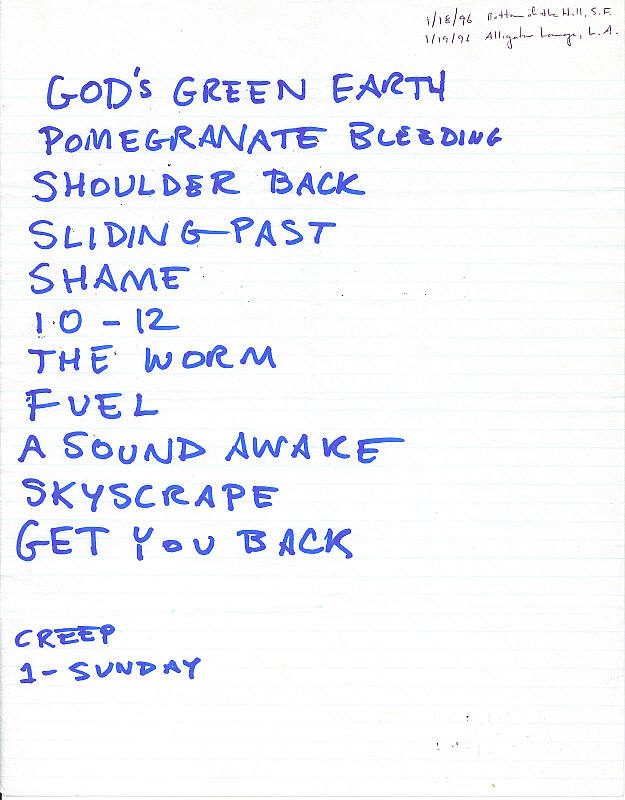 1/18/96 Bottom of the Hill, S.F.
1/19/96 Alligator Lounge, L.A.
GOD'S GREEN EARTH
POMEGRANATE BLEEDING
SHOULDER BACK
SLIDING PAST
SHAME
10-12
THE WORM
FUEL
A SOUND AWAKE
SKYSCRAPE
GET YOU BACK
CREEP
1-SUNDAY